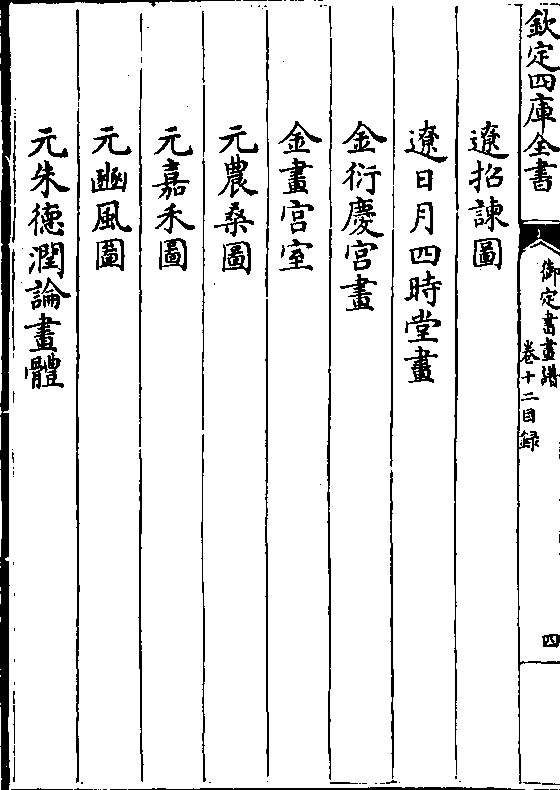 欽定四庫全書
御定書畫譜
卷十二目録
四
遼招諫圖
遼日月四時堂畫
金衍慶宫畫
金畫宫室
元農桑圖
元嘉禾圖
元豳風圖
元朱德潤論畫體